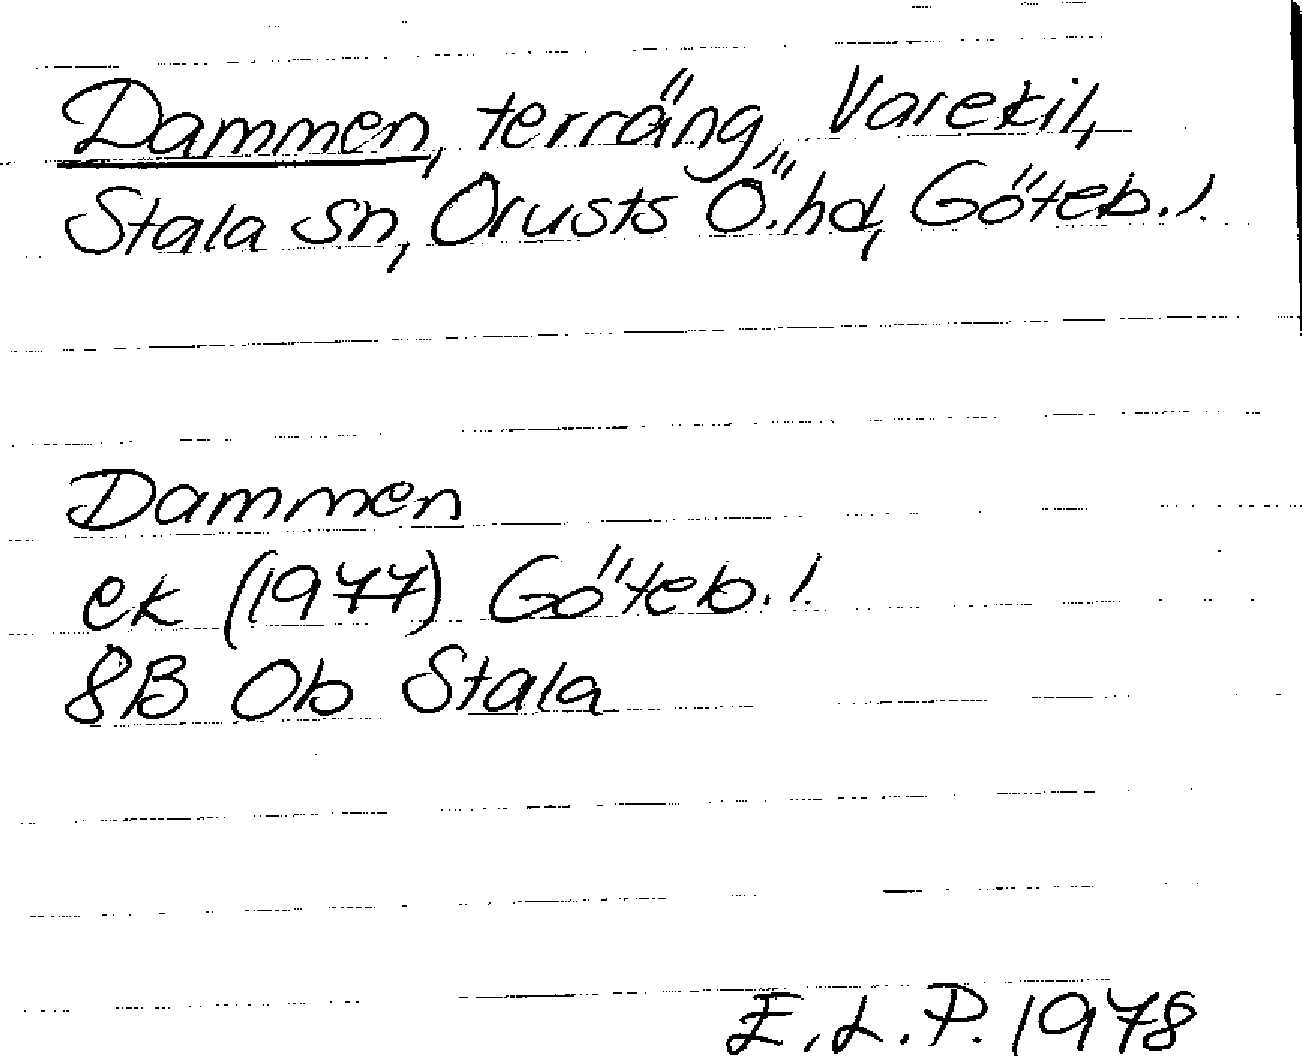 Dammen, terräng, Varekil,
Stala sn, Orusts Ö. hd, Göteb. l.
Dammen
ek (1977) Göteb. l.
8B 0b Stala
E. L. P. 1978